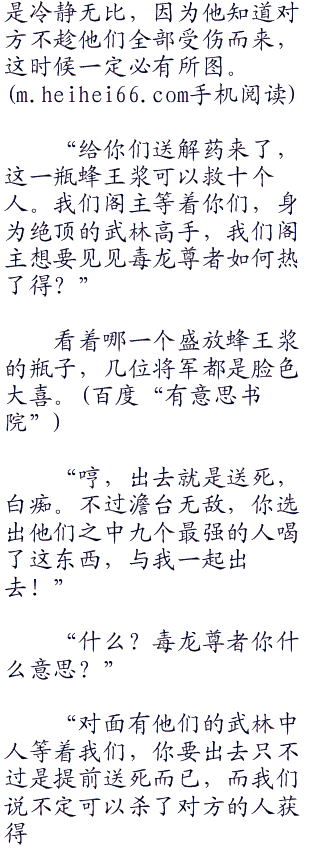 是冷静无比，因为他知道对
方不趁他们全部受伤而来，
这时候一定必有所图。
(m.heihei66.com手机阅读)
“给你们送解药来了，
这一瓶蜂王浆可以救十个
人。我们阁主等着你们，身
为绝顶的武林高手，我们阁
主想要见见毒龙尊者如何热
了得？”
看着哪一个盛放蜂王浆
的瓶子，几位将军都是脸色
大喜。(百度“有意思书
院”)
“哼，出去就是送死，
白痴。不过澹台无敌，你选
出他们之中九个最强的人喝
了这东西，与我一起出
去！”
“什么？毒龙尊者你什
么意思？”
“对面有他们的武林中
人等着我们，你要出去只不
过是提前送死而已，而我们
说不定可以杀了对方的人获
得